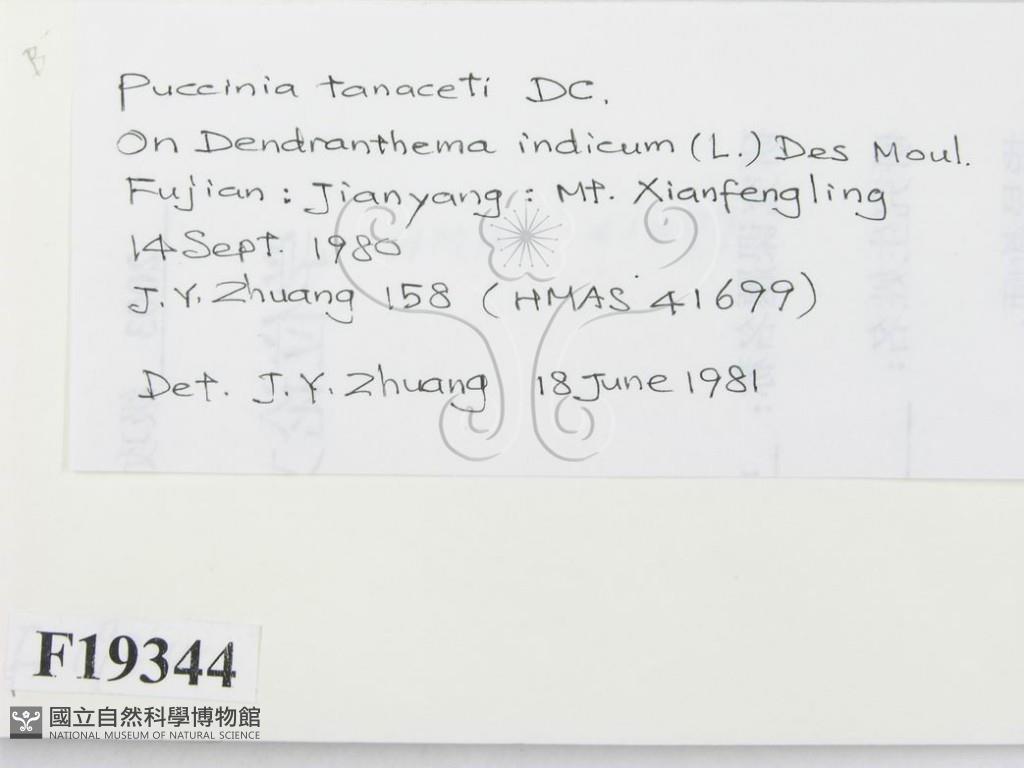 B
Puccinia tanaceti DC.
On Dendranthema indicum (L.) Des Moul.
Fujian : Jianyang : Mt. Xianfengling
14 Sept. 1980
J.Y. Zhuang 158 (HMAS 41699)
Det. J.Y. Zhuang 18 June 1981
F19344
國立自然科學博物館
NATIONAL MUSEUM OF NATURAL SCIENCE